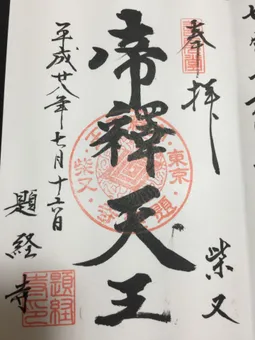 奉拝
柴又
帝釋天王
平成廿八年七月十六日
題経寺
東京
柴又